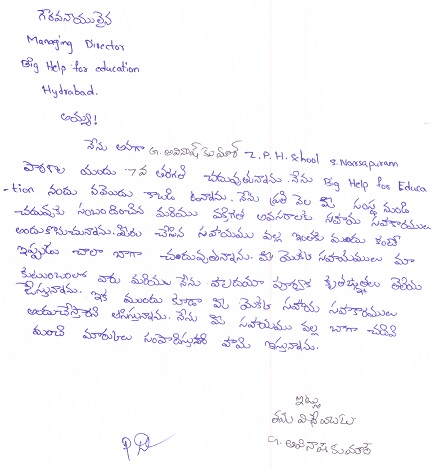 గౌరవనీయులైన
Managing Director
Big Help for education
Hydrabad.
అయ్యా!
నేను అనగా G. అవినాష్ కుమార్ Z.P.H. School S. Narsapuram
పాఠశాల యందు 7వ తరగతి చదువుతున్నాను. నేను Big Help for Educa
-tion నందు
నేను ప్రతి నెల మీ సంస్థ నుండి
చదువుకు సంబంధించిన మరియు అవసరాలకు సహాయ సహకారములు
అందుకొనుచున్నాను. మీరు చేసిన సహాయము వల్ల ఇంతకు ముందు కంటే
ఇప్పుడు చాలా బాగా చదువుతున్నాను. మీ యొక్క సహాయములు మా
కుటుంబంలోని వారు మరియు నేను హృదయ పూర్వక కృతజ్ఞతలు తెలియ
చేస్తున్నాను. ఇక ముందు కూడా మీ యొక్క సహాయ సహకారములు
అందచేస్తారని ఆశిస్తున్నాను. నేను మీ సహాయము వల్ల బాగా చదివి
మంచి మార్కులు సంపాదిస్తానని హామీ ఇస్తున్నాను.
ఇట్లు
తమ విధేయుడు
G. అవినాష్ కుమార్